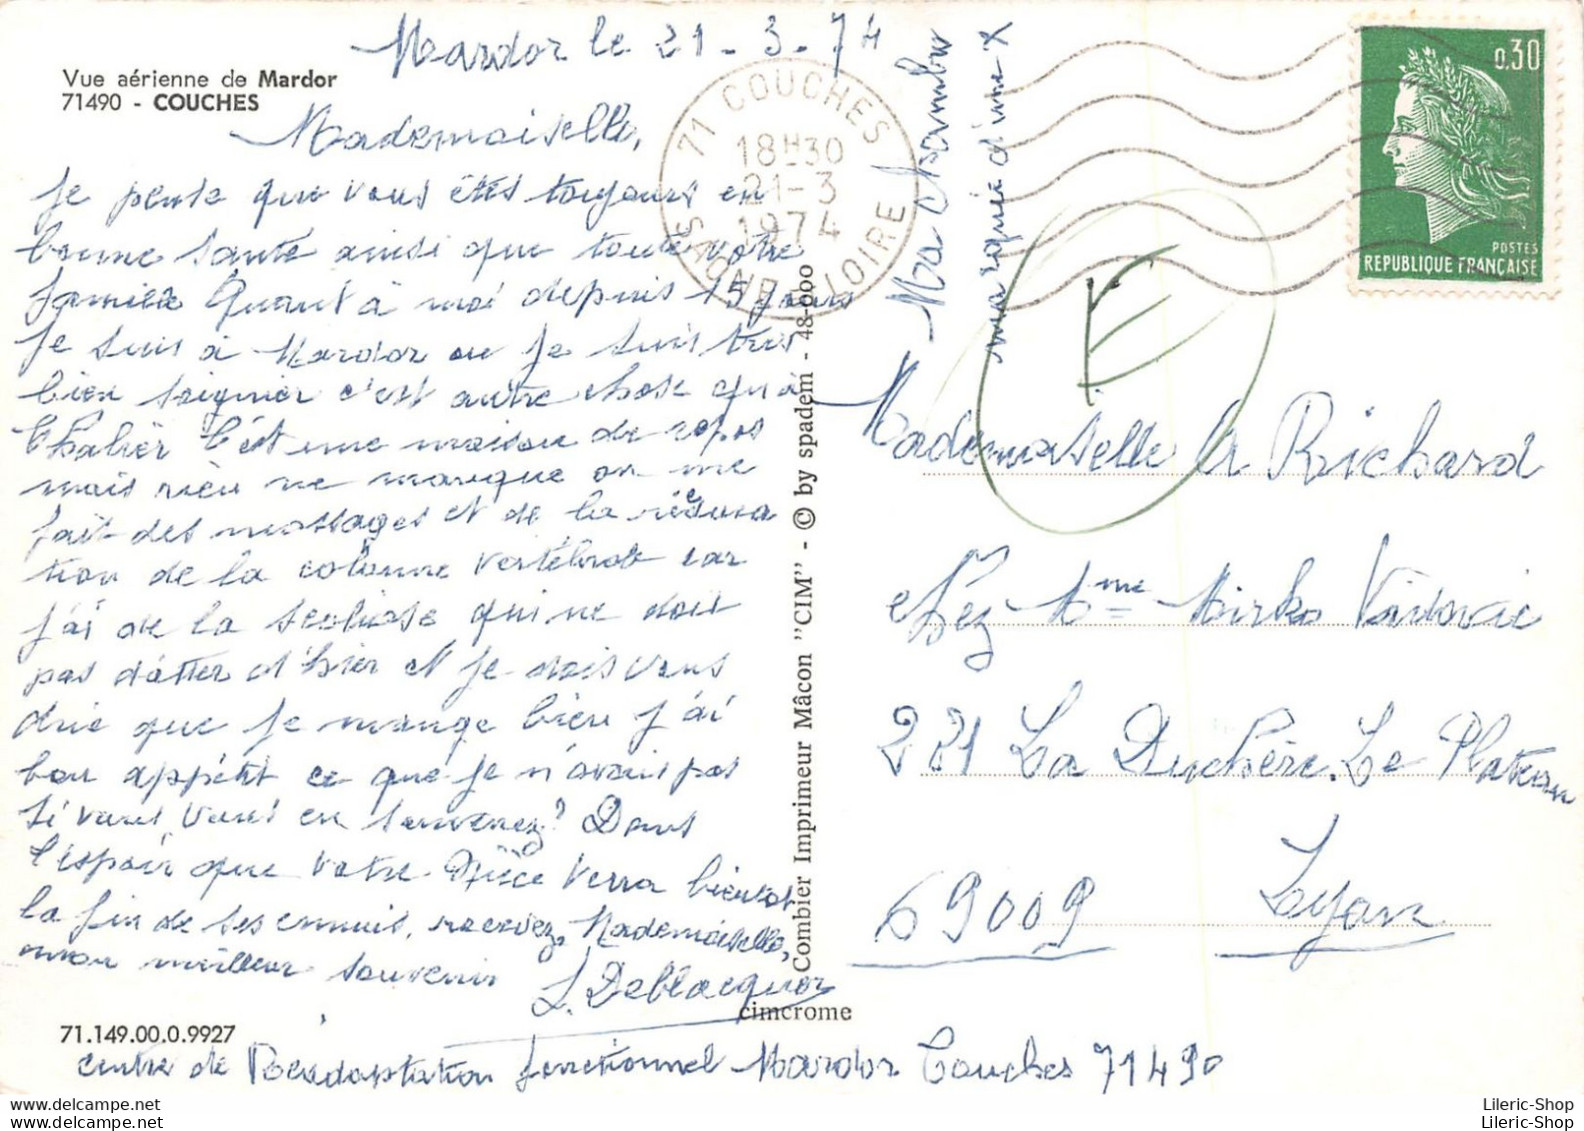 Mardor le 21-3-74
Vue aérienne de Mardor
71490 - COUCHES
Mademoiselle,
je pense que vous êtes toujours en
bonne santé ainsi que toute votre
famille Quant à moi depuis 15 jours
je suis à Mardor ou je suis très
bien soigner c'est autre chose qu'à
C'est une maison de repos
mais rien ne manque on me
fait des massages et de la rééduca
tion de la colonne vertébrale car
j'ai de la scoliose qui ne doit
pas datter d'hier et je dois vous
dire que je mange bien j'ai
bon appétit ce que je n'avais pas
si vous vous en souvenez? Dans
l'espoir que votre Nièce verra bientot
la fin de ses ennuis, recevez, Mademoiselle,
mon meilleur souvenir
71.149.00.0.9927
centre de Réadaptation fonctionnel Mardor Couches 71490
Combier Imprimeur Mâcon "CIM" - © by spadem - 48-000
cimcrome
71 COUCHES
18H30
21-3
1974
SAONE ET LOIRE
Ma chambre
marquée d'une X
E
0,30
POSTES
REPUBLIQUE FRANÇAISE
Mademoiselle Richard
chez Mme Mirko
221 La Duchère. Le Plateau
69009 Lyon
Lileric-Shop
Lileric-Shop